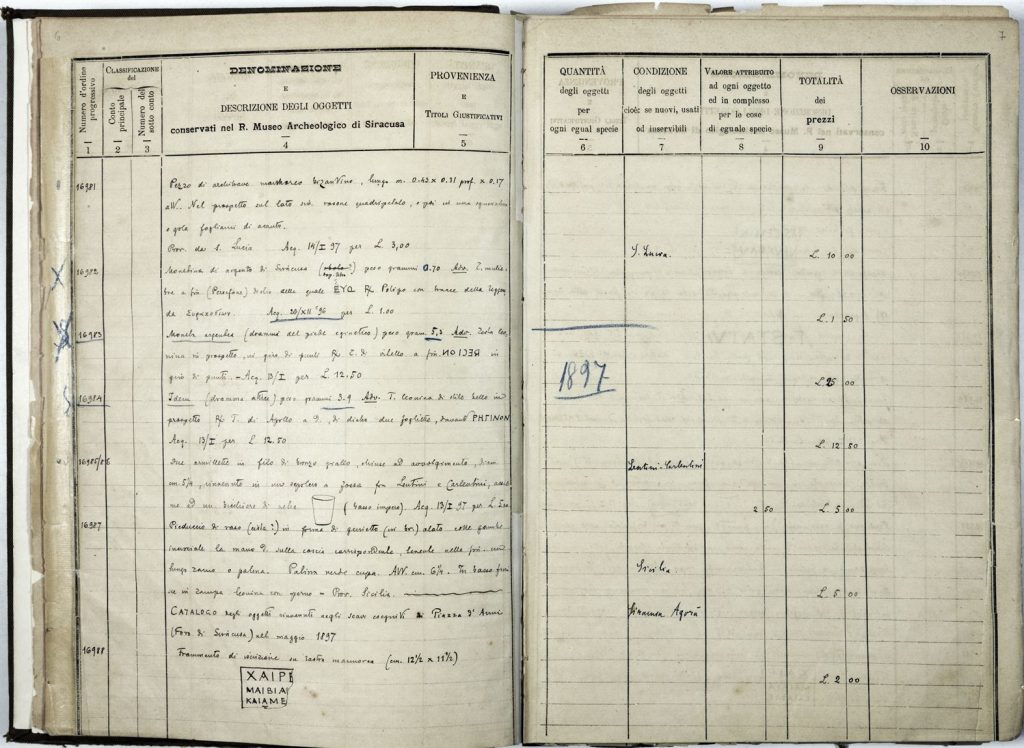 6
Numero d'ordine progressivo
Classificazione del
Conto principale
Numero del sotto conto
DENOMINAZIONE
E
DESCRIZIONE DEGLI OGGETTI
conservati nel R. Museo Archeologico di Siracusa
PROVENIENZA
E
Titoli Giustificativi
1 2 3 4 5
16981 Pezzo di architrave marmoreo bizantino, lungo m. 0.43 x 0.31 prof. x 0.17
alt. Nel prospetto sul lato rosone quadripetalo, e poi
o gola fogliami di acanto.
Prov. da S. Lucia Acq. 14/I 97 per L. 3,00
X
16982 Monetina di argento di Siracusa (obolo?) peso grammi 0.70 Adv. T. mulie-
bre a (Persefone) delle quale ΕΥΩ R/ Polipo con tracce della leggen-
da Συρακοσίων. Acq. 20/XII '96 per L. 1.00
16983 Moneta argentea (dramma del piede eginetico) peso gram. 5,3 Adv. Testa leo-
nina in prospetto, in giro di punti R/ T. di vitello a in
giro di punti. - Acq. 13/I per L. 12.50
16984 Idem (dramma attica) peso grammi 3.9 Adv. T. leonina di stile bello in
prospetto R/ T. di Apollo a d., di dietro due foglie, davanti ΡΗΓΙΝΟΝ
Acq. 13/I per L. 12.50
16985/86 Due armillette in filo di bronzo giallo, chiuse ad avvolgimento, diam.
cm. 5 1/4, rinvenute in un sepolcro a fossa fra Lentini e Carlentini, assie-
me ad un bicchiere di vetro (basso impero). Acq. 13/I 97 per L. 5.00
16987 Pieduccio di vaso (cista?) in forma di genietto (in br.) alato colle gambe
incrociate la mano d. sulla coscia corrispondente, tenente nella
lungo ramo o palma. Patina verde cupa. Alt. cm. 6 1/4. In basso
in zampa leonina con perno - Prov. Sicilia.
CATALOGO degli oggetti rinvenuti negli scavi eseguiti a Piazza d'Armi
(Foro di Siracusa) nel maggio 1897
16988 Frammento di iscrizione su lastra marmorea (cm. 12 1/2 x 11 1/2)
ΧΑΙΡΕ
ΜΑΙΒΙΑ
ΚΑΙΑΜΕ
7
QUANTITÀ
degli oggetti
per
ogni egual specie
CONDIZIONE
degli oggetti
cioè: se nuovi, usati
od inservibili
Valore attribuito
ad ogni oggetto
ed in complesso
per le cose
di eguale specie
TOTALITÀ
dei
prezzi
OSSERVAZIONI
6 7 8 9 10
S. Lucia. L. 10 00
L. 1 50
1897
L. 25 00
L. 12 50
Lentini-Carlentini
2 50 L. 5 00
Sicilia.
L. 5 00
Siracusa Agorà
L. 2 00